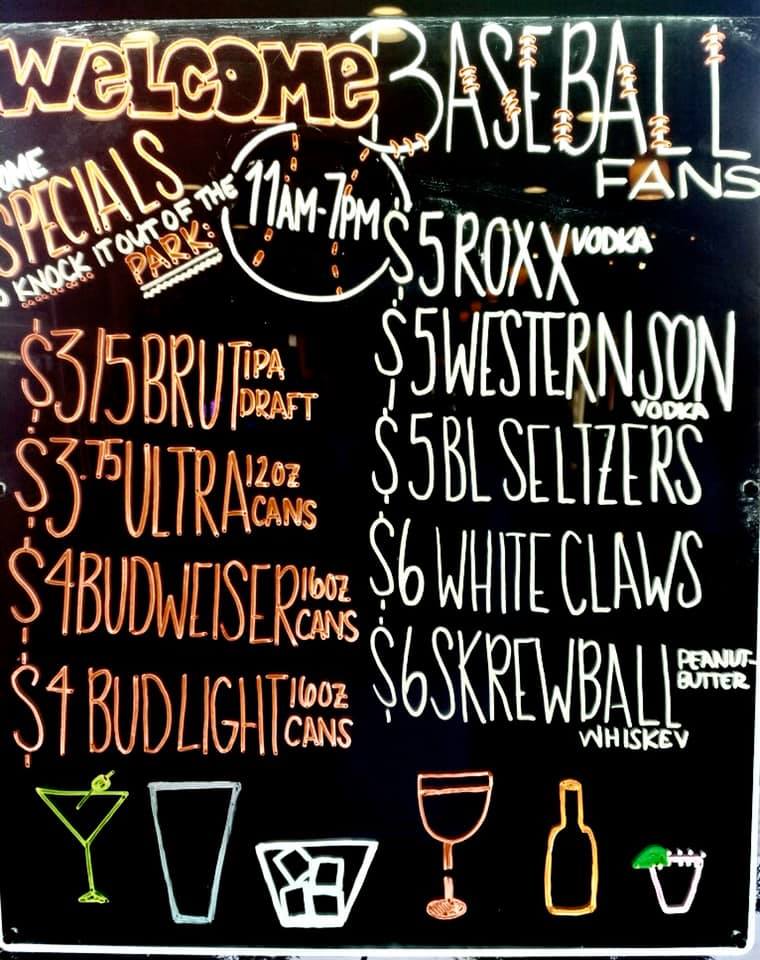 WELCOME BASEBALL
FANS
OME
SPECIALS
O KNOCK IT OUT OF THE
PARK:
11AM-7PM
$3/5 BRUT IPA
DRAFT
$3.75 ULTRA 12OZ
CANS
$4 BUDWEISER 16OZ
CANS
$4 BUD LIGHT 16OZ
CANS
$5 ROXX VODKA
$5 WESTERN SON
VODKA
$5 BL SELTZERS
$6 WHITE CLAWS
$6 SKREWBALL PEANUT-
BUTTER
WHISKEY